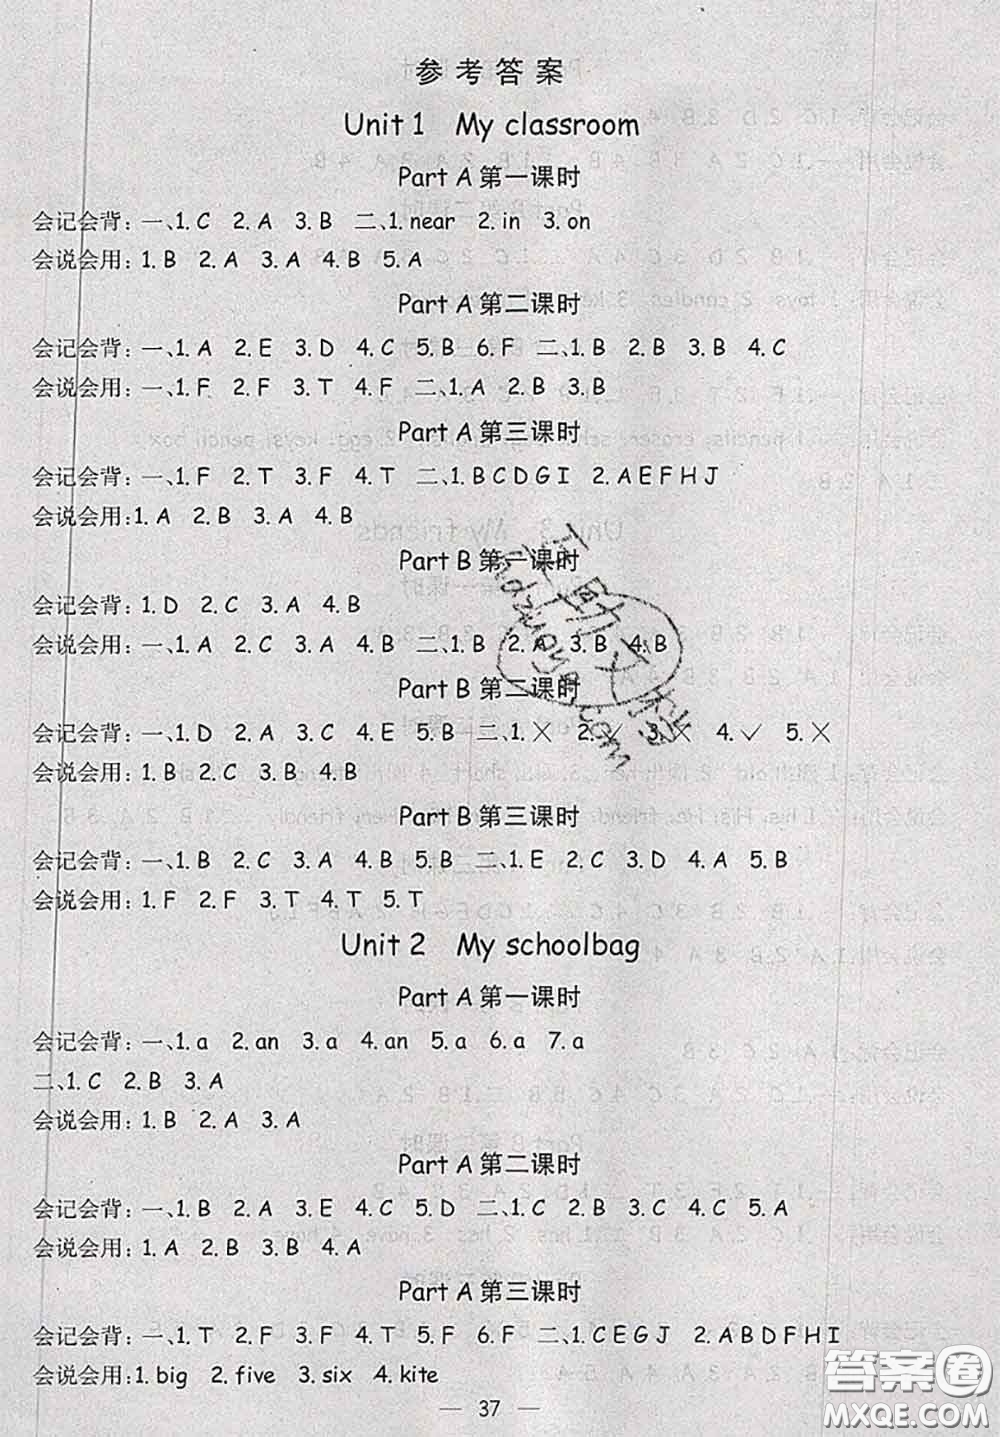 参考答案
Unit 1 My classroom
Part A 第一课时
会记会背: 一、1. C 2. A 3. B 二、1. near 2. in 3. on
会说会用: 1. B 2. A 3. A 4. B 5. A
Part A 第二课时
会记会背: 一、1. A 2. E 3. D 4. C 5. B 6. F 二、1. B 2. B 3. B 4. C
会说会用: 一、1. F 2. F 3. T 4. F 二、1. A 2. B 3. B
Part A 第三课时
会记会背: 一、1. F 2. T 3. F 4. T 二、1. B C D G I 2. A E F H J
会说会用: 1. A 2. B 3. A 4. B
Part B 第一课时
会记会背: 1. D 2. C 3. A 4. B
会说会用: 一、1. A 2. C 3. A 4. B 二、1. B 2. A 3. B 4. B
Part B 第二课时
会记会背: 一、1. D 2. A 3. C 4. E 5. B 二、1. × 2. √ 3. × 4. √ 5. ×
会说会用: 1. B 2. B 3. A 4. B
Part B 第三课时
会记会背: 一、1. B 2. C 3. A 4. B 5. B 二、1. E 2. C 3. D 4. A 5. B
会说会用: 1. F 2. F 3. T 4. T 5. T
Unit 2 My schoolbag
Part A 第一课时
会记会背: 一、1. a 2. an 3. a 4. an 5. a 6. a 7. a
二、1. C 2. B 3. A
会说会用: 1. B 2. A 3. A
Part A 第二课时
会记会背: 一、1. B 2. A 3. E 4. C 5. D 二、1. C 2. B 3. A 4. C 5. A
会说会用: 1. A 2. B 3. B 4. A
Part A 第三课时
会记会背: 一、1. T 2. F 3. F 4. T 5. F 6. F 二、1. C E G J 2. A B D F H I
会说会用: 1. big 2. five 3. six 4. kite
— 37 —
答案圈
MXQE.COM